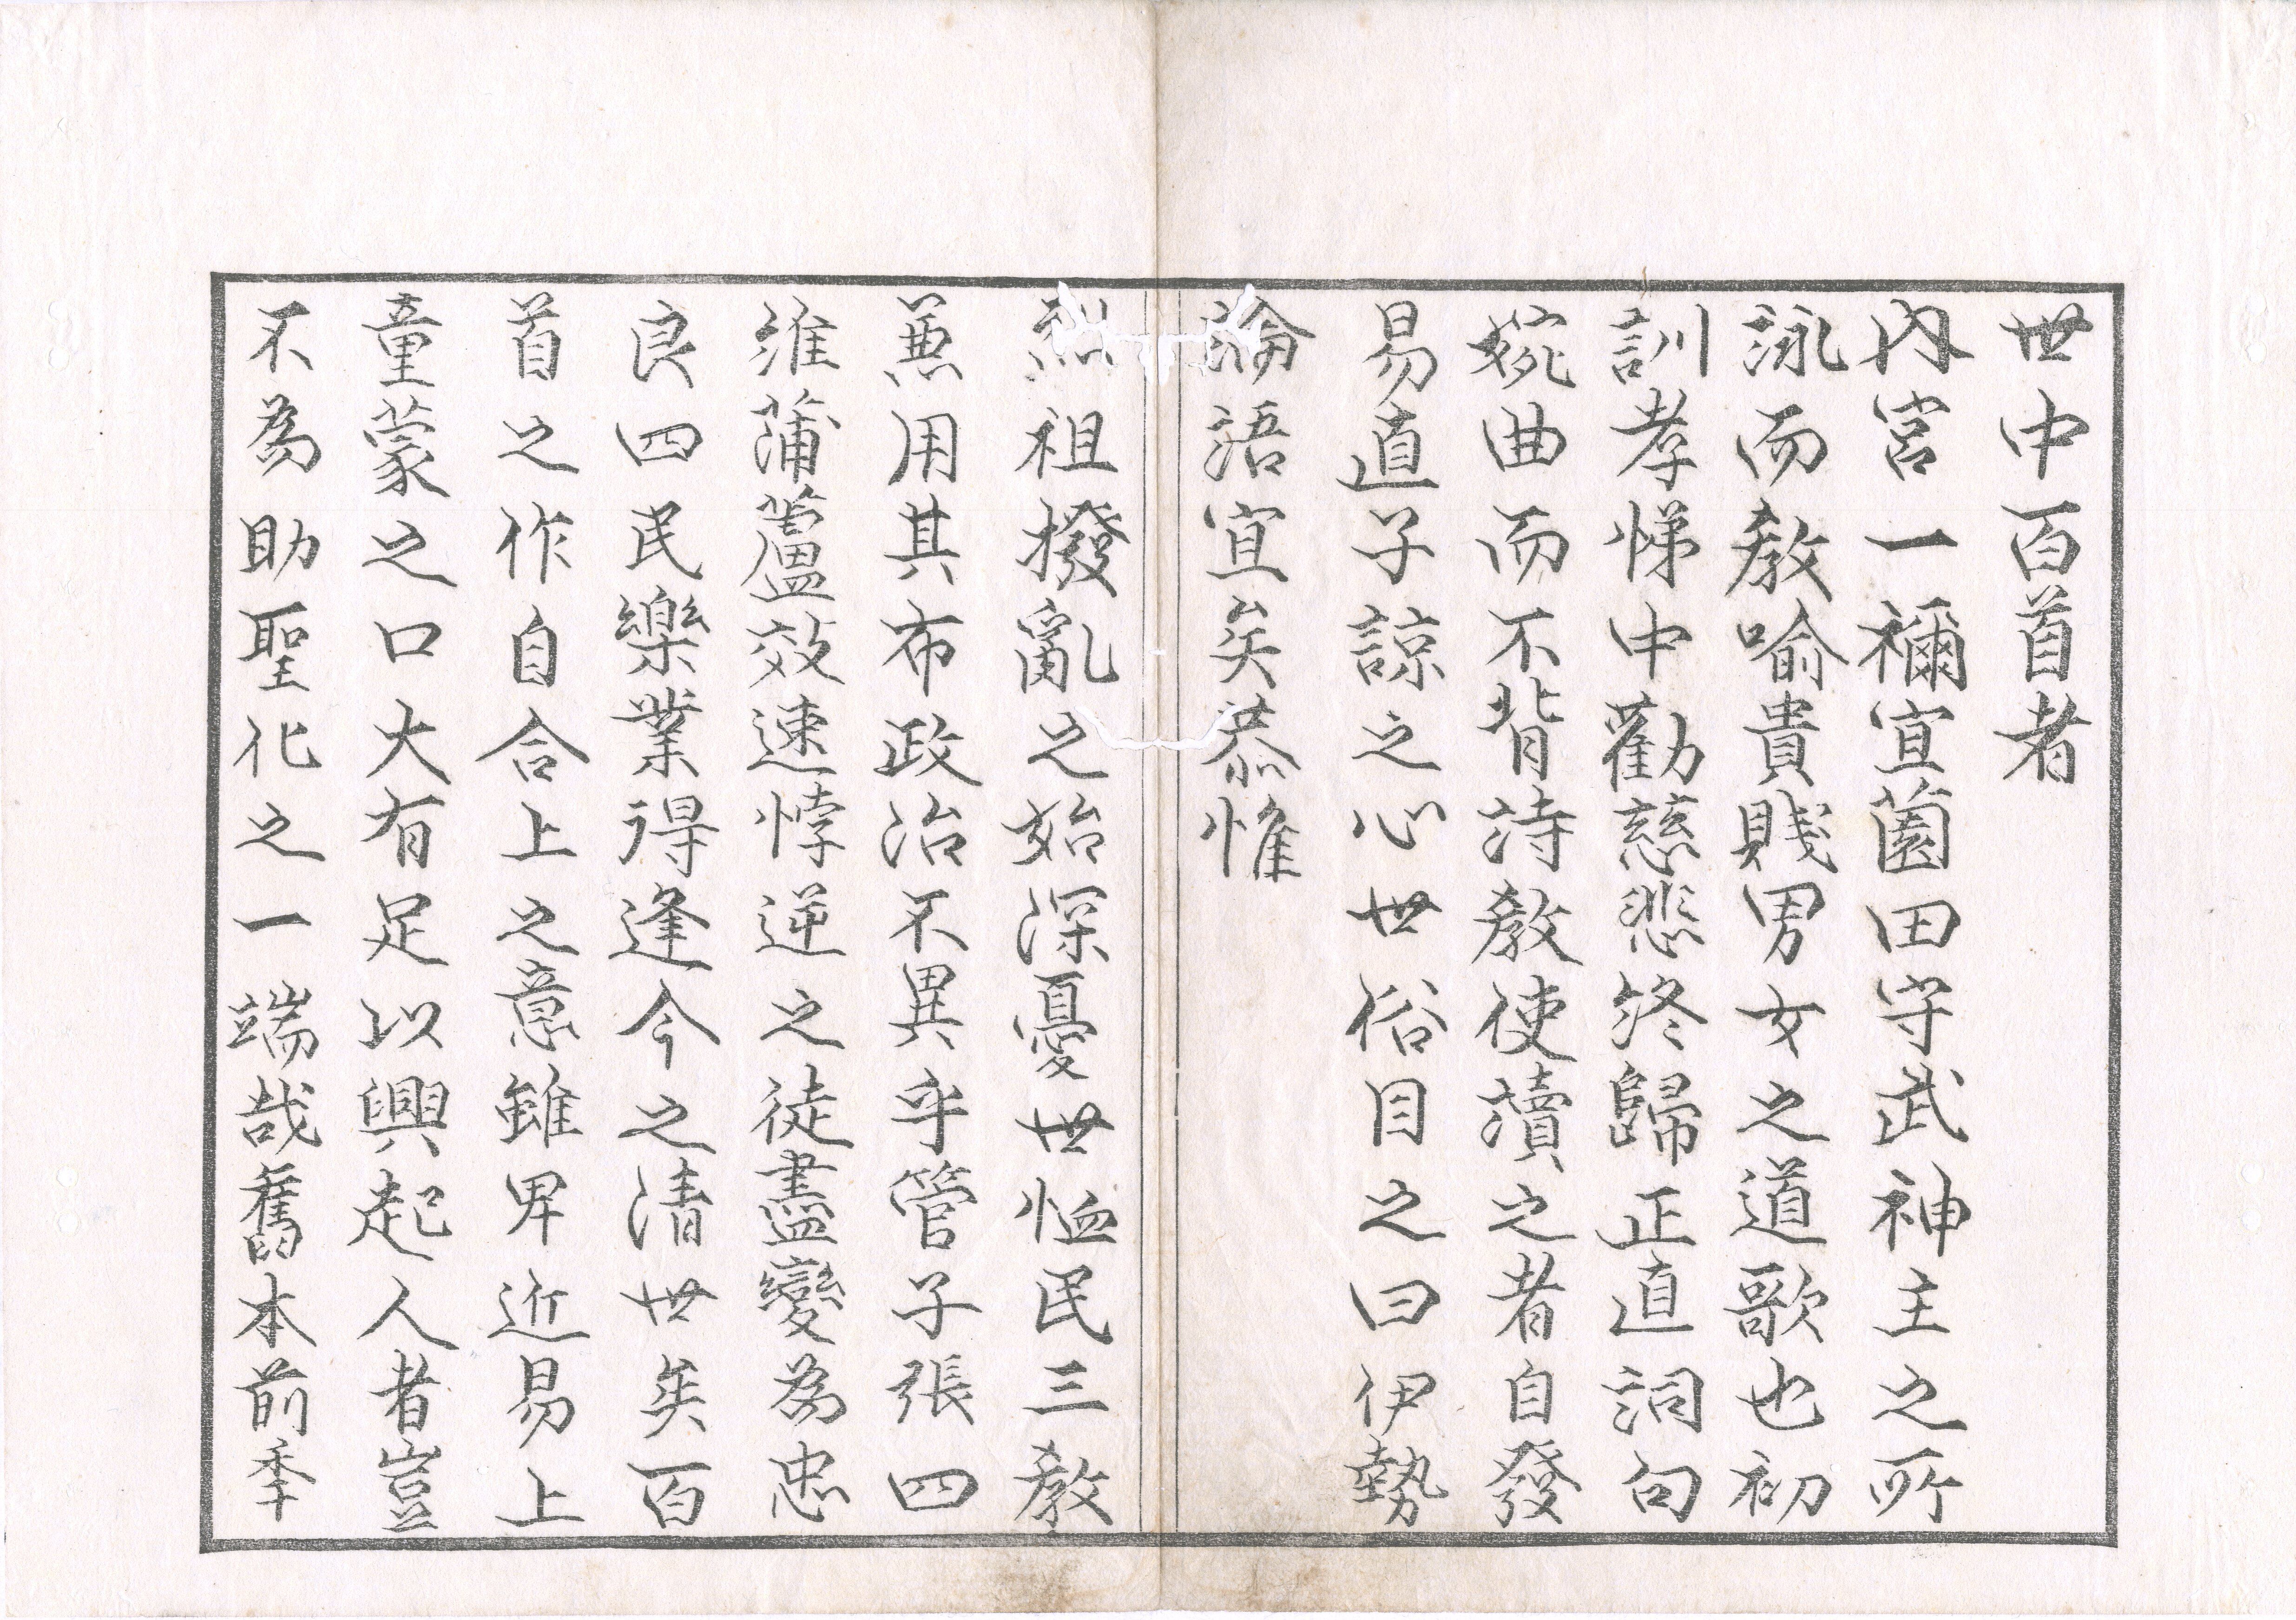 世中百首者
内宮一禰宜薗田守武神主之所
詠而教喩貴賤男女之道歌也初
訓孝悌中勸慈悲終歸正直詞句
婉曲而不背詩教使讀之者自發
易直子諒之心世俗目之曰伊勢
論語宜矣恭惟
烈祖撥亂之始深憂世恤民三教
兼用其布政治不異乎管子張四
維蒲蘆效速悖逆之徒盡變為忠
良四民樂業得逢今之清世矣百
首之作自合上之意雖卑近易上
童蒙之口大有足以興起人者豈
不為助聖化之一端哉舊本前季